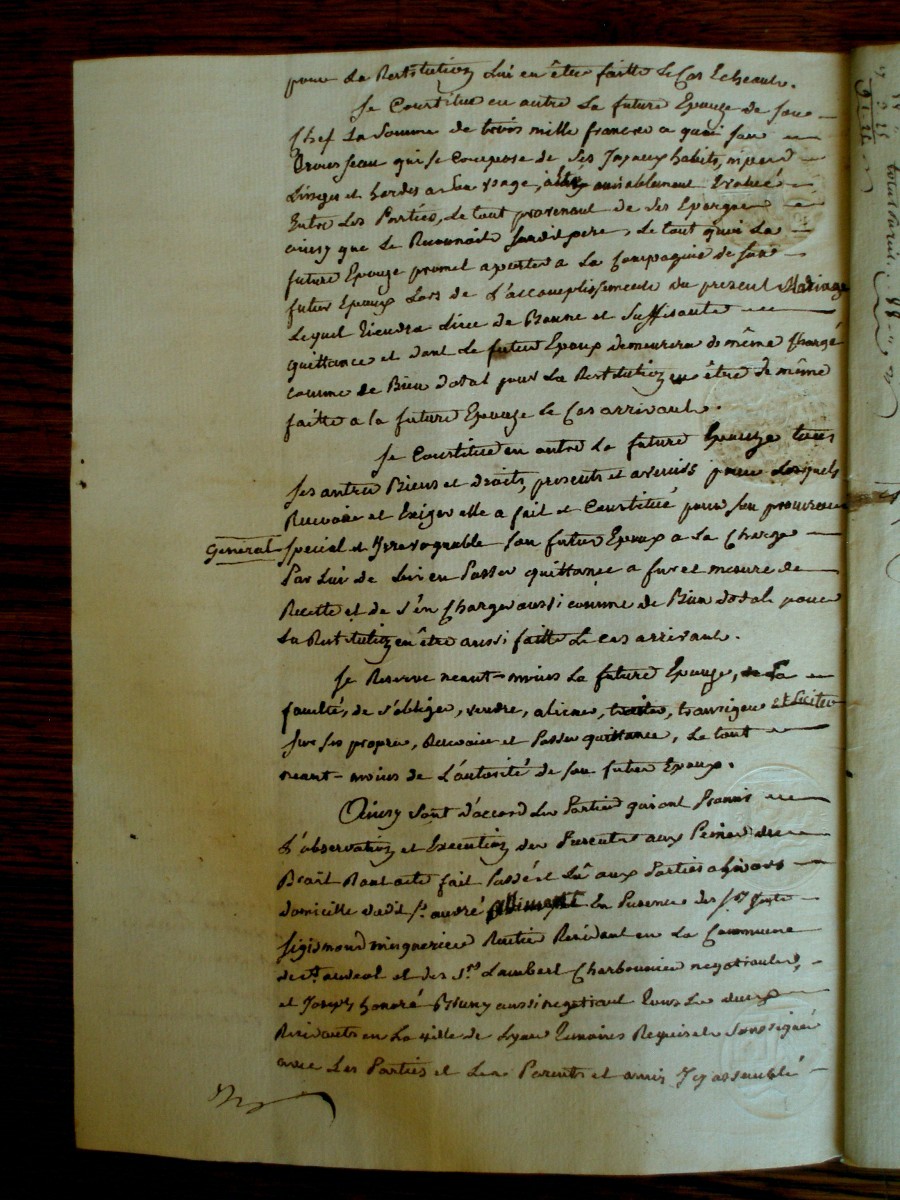 pour la Restitution lui en être faitte le Cas Echeant.
Se Constitue en outre la future Epouze de son
Chef la Somme de trois mille francs a quoi son
Trousseau qui se Compose de ses Joyaux habits,
Linges et hardes a son usage, a été amiablement Evalué
Entre les Parties, le tout provenant de ses Epargnes
ainsy que le Reconnait sondit pere, le tout quoi la
future Epouze promet aporter a la Compagnie de son
futur Epoux lors de l'accomplissement du present Mariage
Lequel tiendra lieu de Bonne et Suffisante
quittance et dont le futur Epoux demeurera de même Chargé
comme de Bien dotal pour la Restitution en être de même
faitte a la future Epouze le Cas arrivant.
Se Constitue en outre la future Epouze tous
ses autres Biens et droits, presents et avenirs pour lesquels
Recevoir et Exiger elle a fait et Constitué pour son procureur
General special et Irrevoquable son futur Epoux a la Charge
Par lui de lui en Passer quittance a fur et mesure de
Recette et de s'en Charger aussi comme de Bien dotal pour
la Restitution en être aussi faitte le cas arrivant.
Se Reserve neant-moins la future Epouze, la
faculté, de s'obliger, vendre, aliener, traiter, transiger et Liciter
sur ses propres, Recevoir et Passer quittance, le tout
neant-moins de l'autorité de son futur Epoux.
Ainsy sont d'accord les Parties qui ont Promis
L'observation et Execution des Presentes aux Peines de
Droit Dont acte fait Passé et Lû aux Parties
domicille dudit Sr. andré En Presence des Srs.
Sigismond Rentier Residant en la Commune
de St. andeol et des Srs. Lambert Charbonnier negotiant,
et Joseph honoré Bruny aussi negotiant tous les deux
Residants en la ville de Lyon temoins Requis et Soussignés
avec les Parties et leurs Parents et amis Icy assemblé